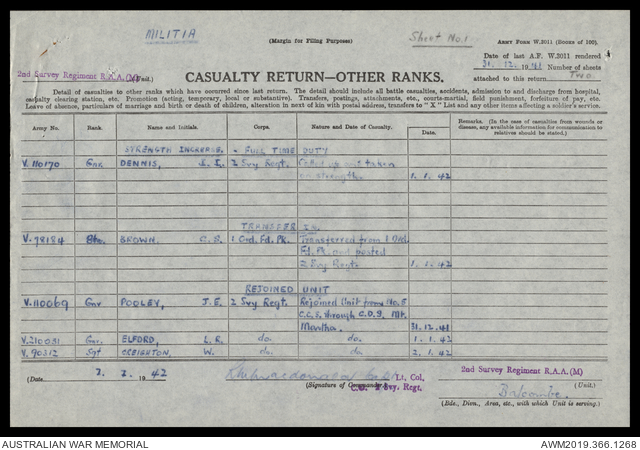 MILITIA
(Margin for Filing Purposes)
Sheet No. 1
ARMY FORM W.3011 (BOOKS OF 100).
Date of last A.F. W.3011 rendered
31. 12. 1941 Number of sheets
attached to this return Two
2nd Survey Regiment R.A.A. (M) (Unit).
CASUALTY RETURN—OTHER RANKS.
Detail of casualties to other ranks which have occurred since last return. The detail should include all battle casualties, accidents, admission to and discharge from hospital,
casualty clearing station, etc. Promotion (acting, temporary, local or substantive). Transfers, postings, attachments, etc., courts-martial, field punishment, forfeiture of pay, etc.
Leave of absence, particulars of marriage and birth or death of children, alteration in next of kin with postal address, transfers to "X" List and any other items affecting a soldier's service.
Army No. Rank. Name and Initials. Corps. Nature and Date of Casualty. Date. Remarks. (In the case of casualties from wounds or disease, any available information for communication to relatives should be stated.)
STRENGTH INCREASE. - FULL TIME DUTY
V.110170 Gnr. DENNIS, 2 Svy Regt. taken
on strength. 1. 1. 42
TRANSFER IN.
V.78184 BROWN. C.S. 1 Ord. Fd. Pk. Transferred from 1 Ord.
Fd. Pk. and posted
2 Svy Regt. 1. 1. 42
REJOINED UNIT
V.110069 Gnr POOLEY, J.E. 2 Svy. Regt. Rejoined Unit from No. 5
C.C.S. through C.D.S. Mt.
Martha. 31. 12. 41
V.210031 Gnr. ELFORD, L.R. do. do. 1. 1. 42
V.90312 Sgt CREIGHTON, W. do. do. 2. 1. 42
(Date 2. 1. 1942 Lt, Col, 2nd Survey Regiment R.A.A. (M)
(Signature of Commander) C.O. 2 Svy. Regt. (Unit.)
Balcombe.
(Bde., Divn., Area, etc., with which Unit is serving.)
AUSTRALIAN WAR MEMORIAL AWM2019.366.1268